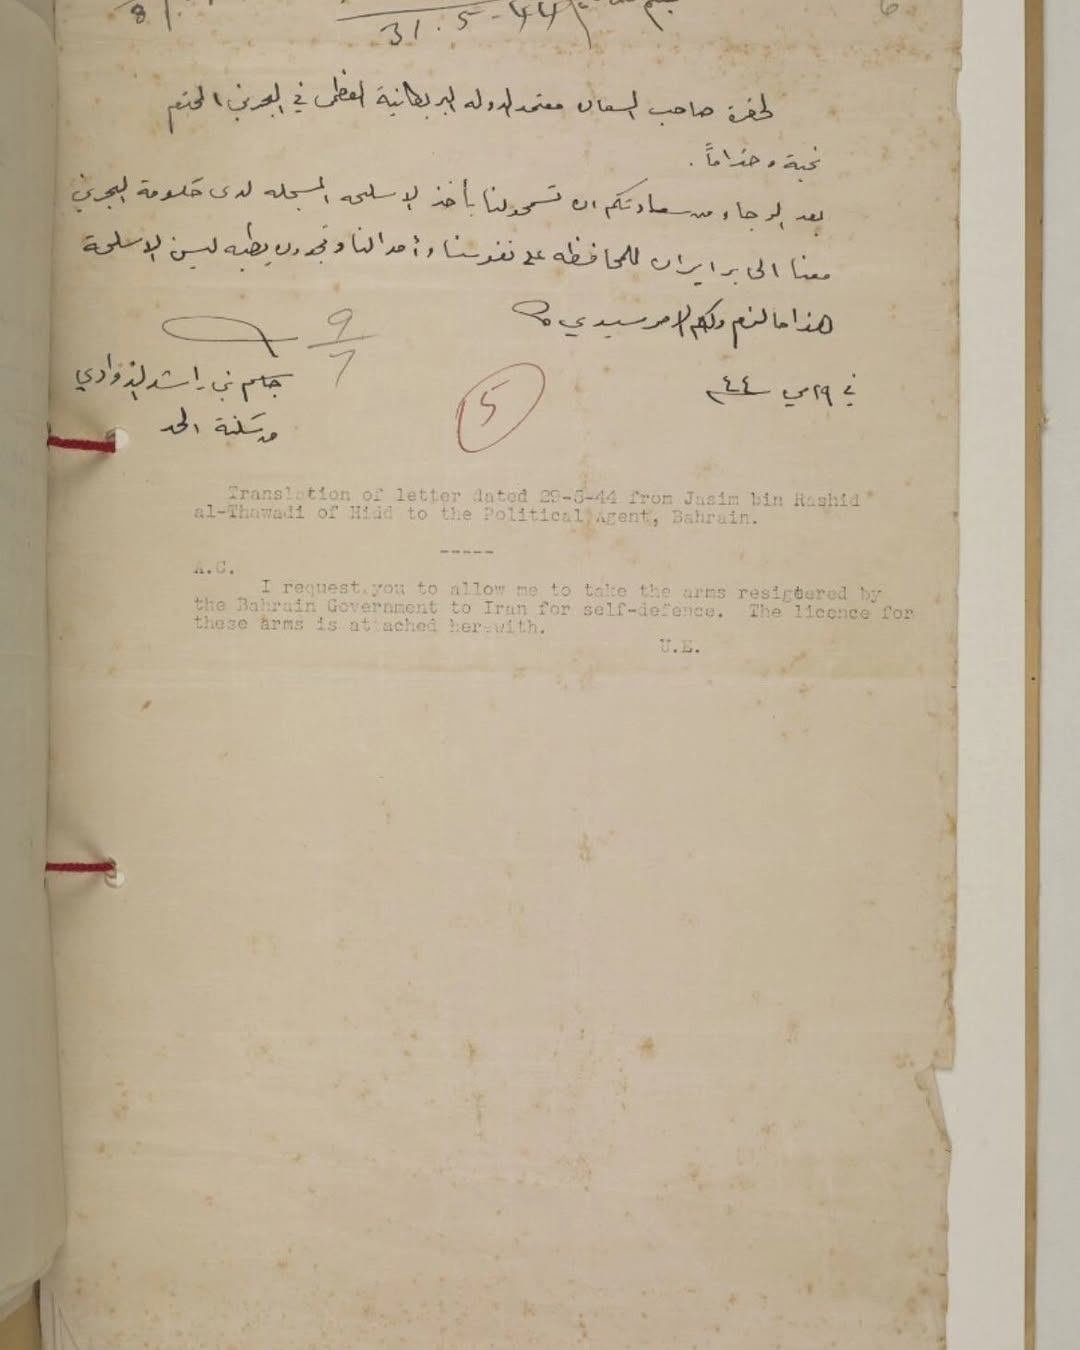 8
31.5.44
6
لحضرة صاحب السعاده معتمد الدوله البريطانية العظمى في البحرين المحترم
تحية واحتراماً .
بعد الرجاء من سعادتكم ان تسمحولنا بأخذ الاسلحه المسجله لدى حكومة البحرين
معنا الى بر ايران للمحافظه على نفوسنا وأموالنا وتجدون بطيه ليسن الاسلحة
هذا مالزم ولكم الامر سيدي
9
7
جاسم بن راشد الذوادي
في ٢٩ مي سنة ٤٤م
5
من سكنة الحد
Translation of letter dated 29-5-44 from Jasim bin Rashid
al-Thawadi of Hidd to the Political Agent, Bahrain.
-----
A.C.
I request you to allow me to take the arms resigtered by
the Bahrain Government to Iran for self-defence. The licence for
these arms is attached herewith.
U.E.